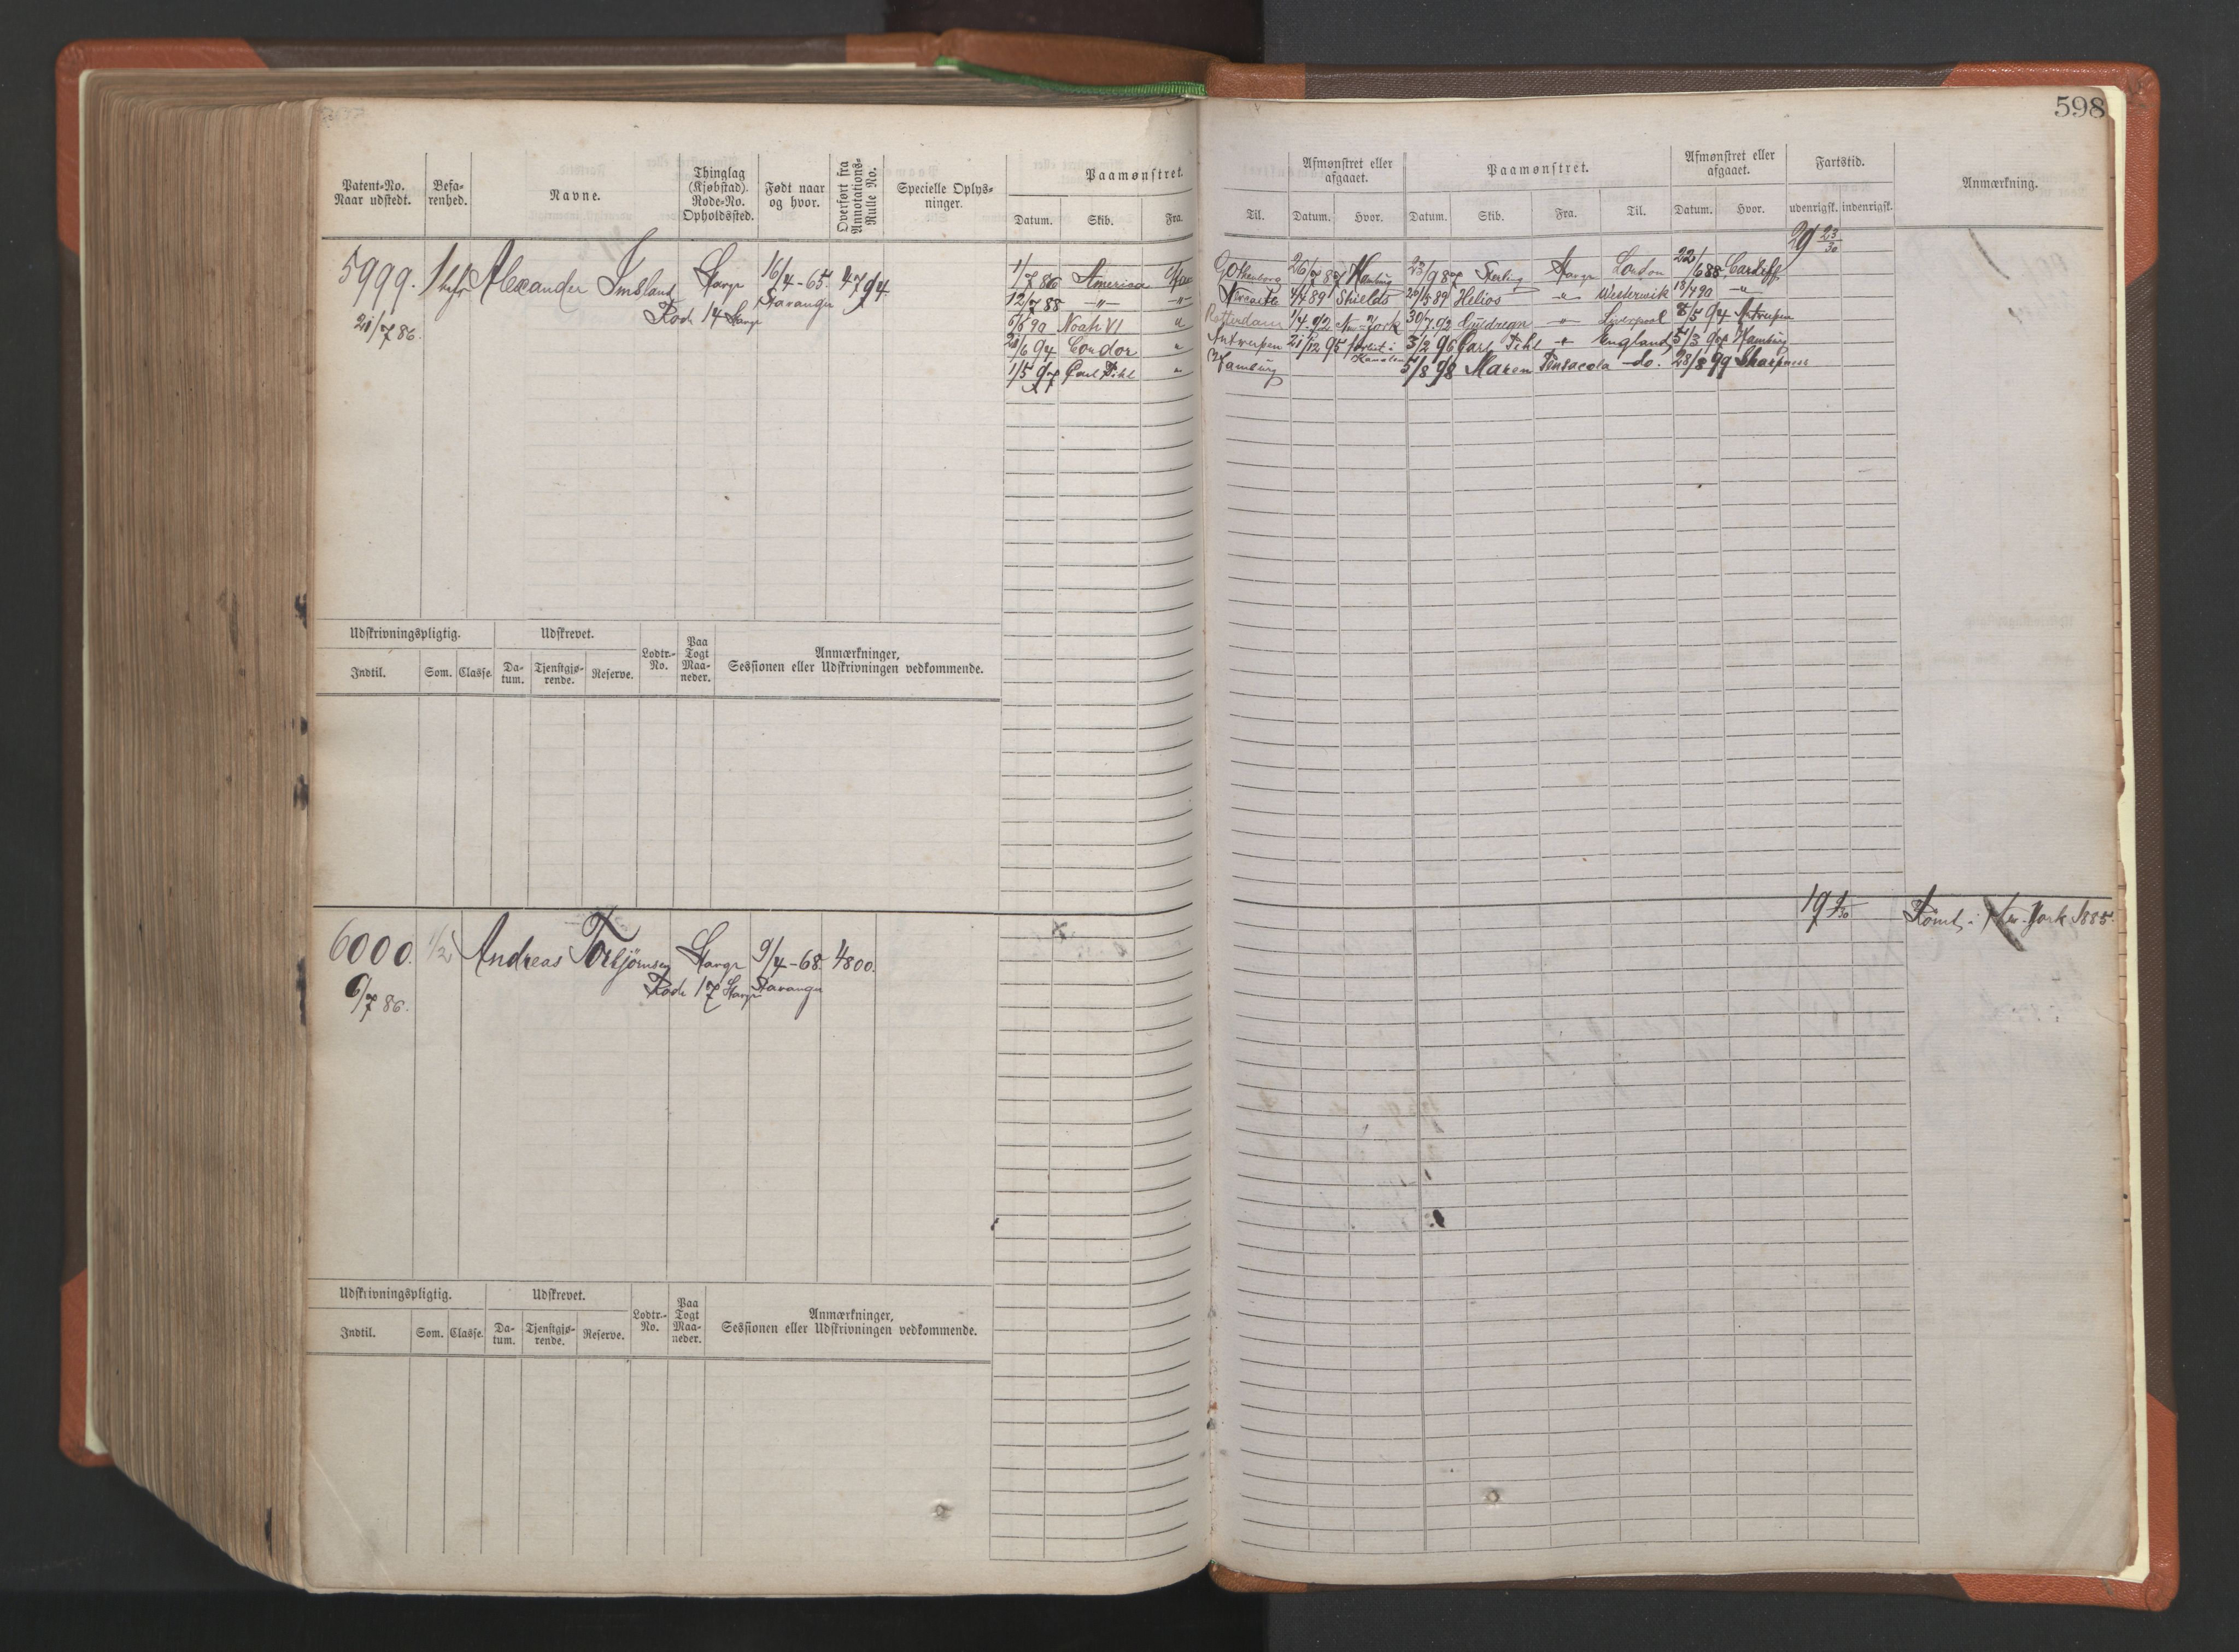 598
Patent-No. Naar udstedt.
Befarenhed.
Navne.
Thinglag (Kjøbstad). Rode-No. Opholdssted.
Født naar og hvor.
Overført fra Annotations-Rulle No.
Specielle Oplysninger.
Paamønstret.
Datum. Skib. Fra.
Til.
Afmønstret eller afgaaet.
Datum. Hvor.
Paamønstret.
Datum. Skib. Fra. Til.
Afmønstret eller afgaaet.
Datum. Hvor.
Fartstid.
udenrigsk. indenrigsk.
Anmærkning.
29 23/30
5999. Alexander Imsland Stavgr 16/4-65. 4794.
Rode 14 Stavgr Stavanger
21/7 86.
1/7 86 America Gothenborg 26/7 87 Hamburg 23/9 87 Sterling Stavgr London 22/6 88 Cardiff
12/7 88 -"- -"- Newcastle 4/4 89 Shields 20/5 89 Helios -"- Westerwik 18/4 90 -"-
6/6 90 Noah VI " Rotterdam 1/4 92 New-York 30/7 92 -"- Liverpool 8/5 94 Antwerpen
21/6 94 Condor " Antwerpen 21/12 95 forlist i Kanalen 3/2 96 Carl Pihl -"- England 5/3 97 Hamburg
1/5 97 Carl Pihl " Hamburg 5/8 98 Maren Pensacola do. 28/8 99 Sharpness
Udskrivningspligtig. Udskrevet. Lodtr.-No. Paa Togt Maaneder. Anmærkninger, Sessionen eller Udskrivningen vedkommende.
Indtil. Som. Classe. Datum. Tjenstgjørende. Reserve.
19 1/30 Rømt i New-York 1885.
6000. 1/2 Andreas Torbjørnsen Stavgr 9/4-68. 4800.
x
Rode 17 Stavgr Stavanger
6/7 86.
Udskrivningspligtig. Udskrevet. Lodtr.-No. Paa Togt Maaneder. Anmærkninger, Sessionen eller Udskrivningen vedkommende.
Indtil. Som. Classe. Datum. Tjenstgjørende. Reserve.